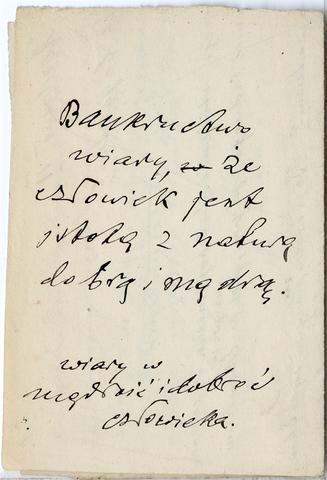 Bankructwo
wiary, w że
człowiek jest
istotą z naturą
dobrą i mądrą.
wiary w
mądrość i dobroć
człowieka.